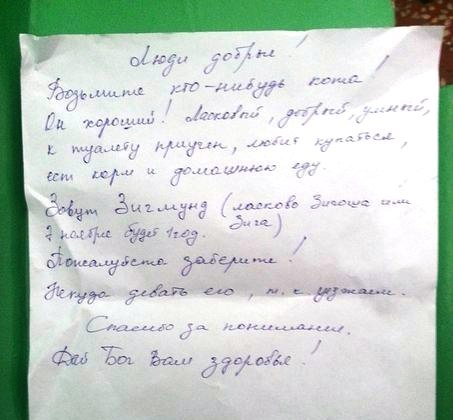 Люди добрые!
Возьмите кто-нибудь кота!
Он хороший! Ласковый, добрый, умный,
к туалету приучен, любит купаться,
ест корм и домашнюю еду.
Зовут Зигмунд (ласково Зигоша или
7 ноября будет 1 год. Зига)
Пожалуйста заберите!
Некуда девать его, т.к уезжаем.
Спасибо за понимание.
Дай Бог Вам здоровья!